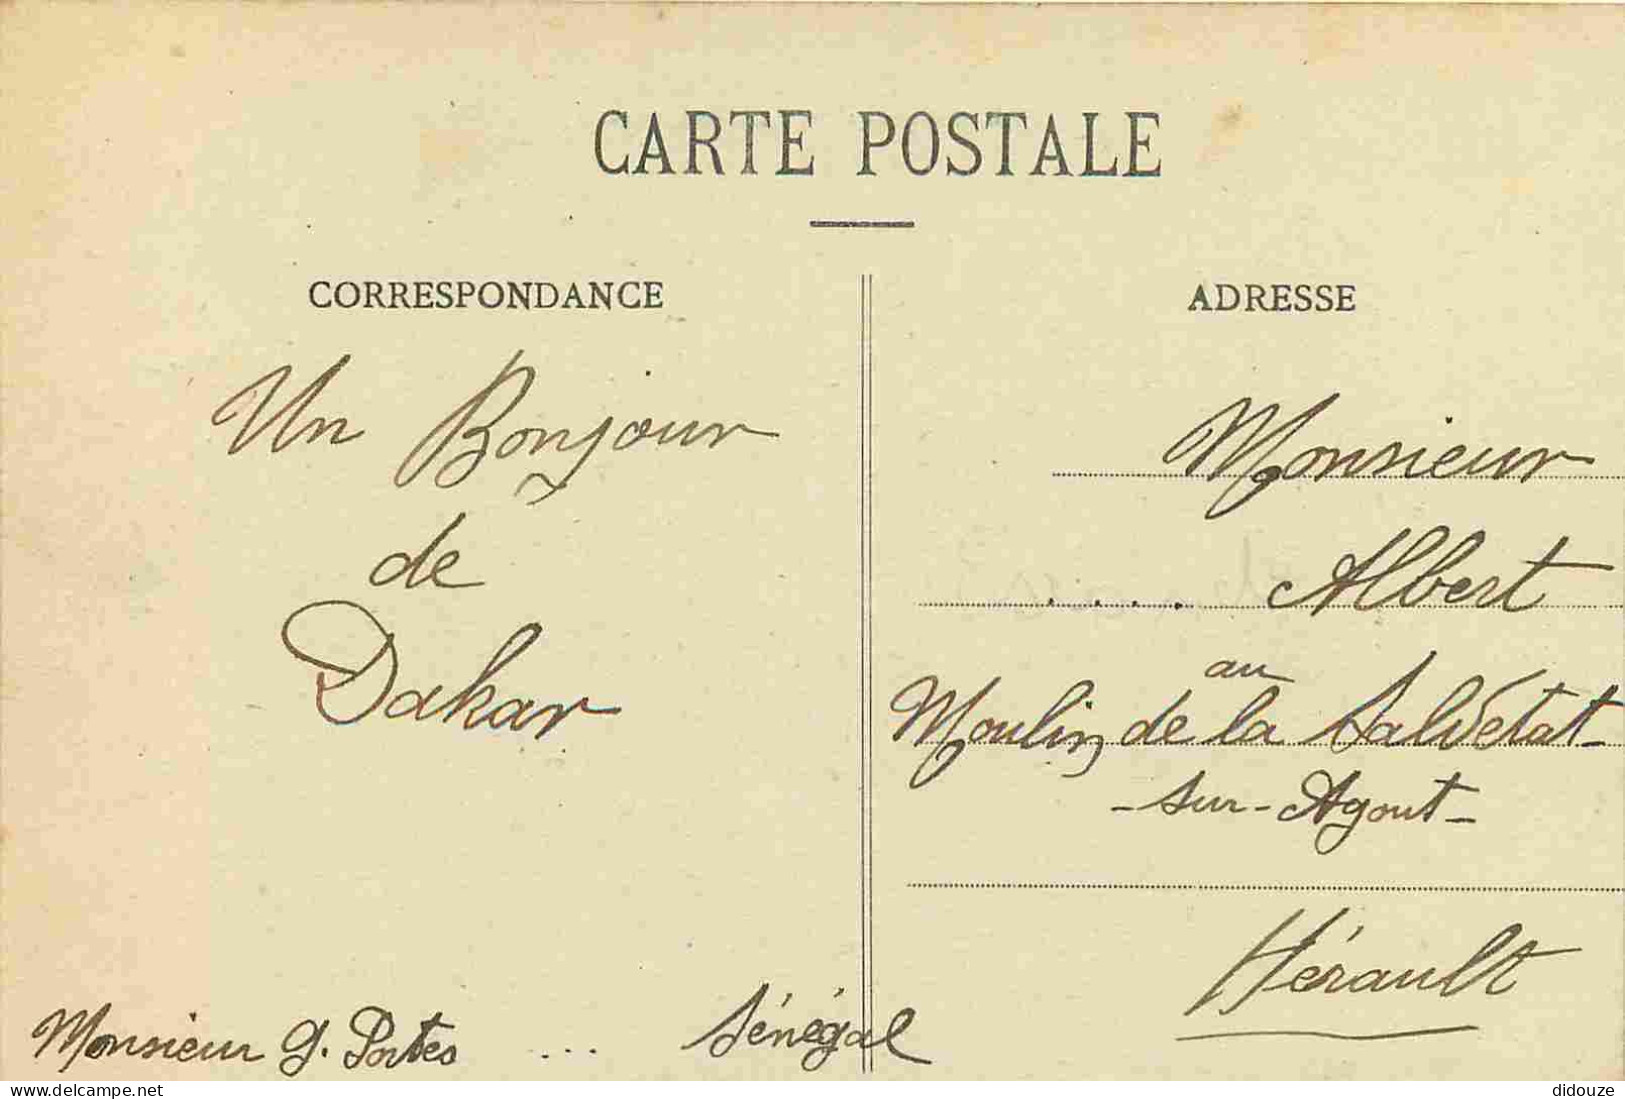 CARTE POSTALE
CORRESPONDANCE
Un Bonjour
de
Dakar
Monsieur G. Portes ... Sénégal
ADRESSE
Monsieur
.... Albert
au
Moulin de la Salvetat-
-sur-Agout-
Hérault
didouze